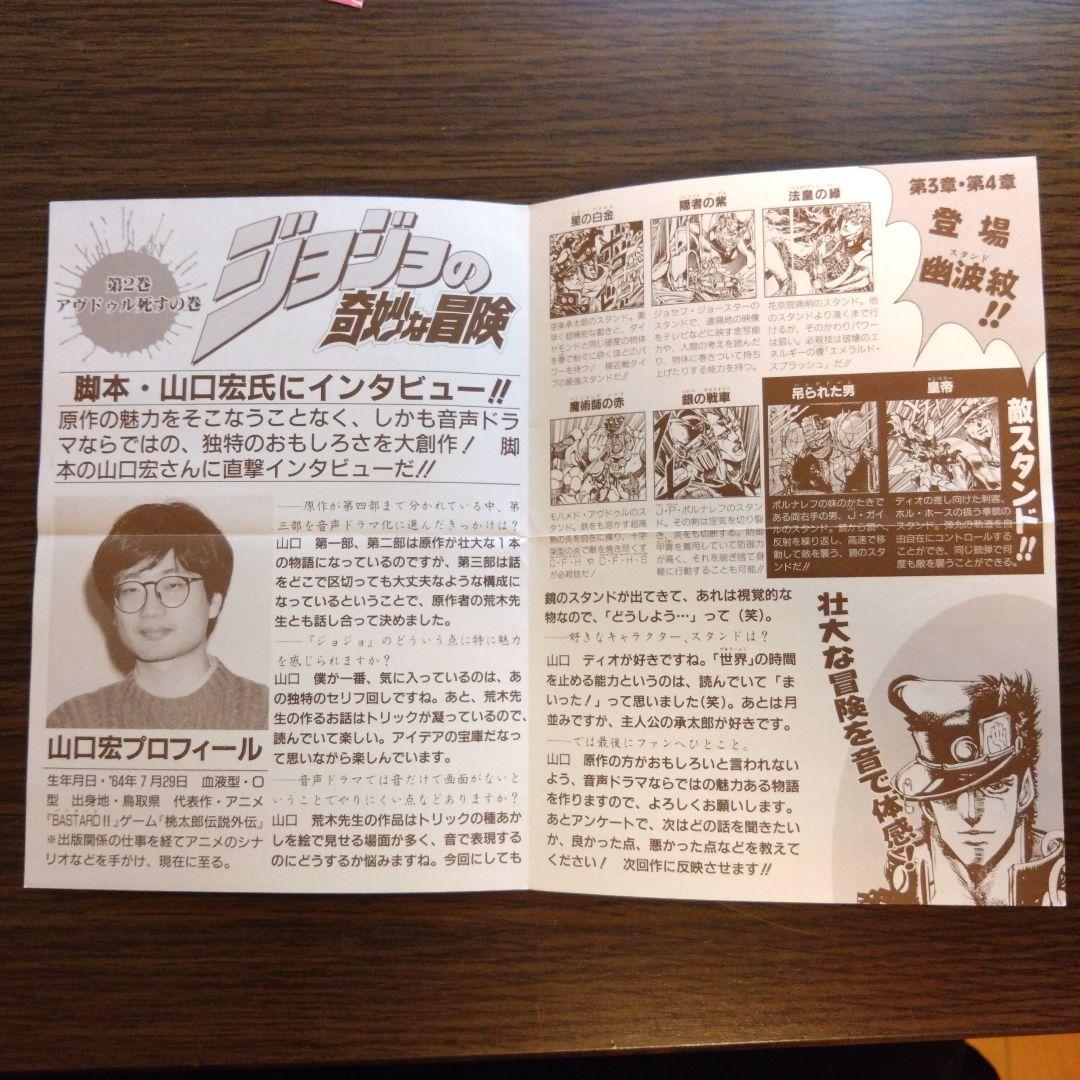 第2巻
アヴドゥル死すの巻
ジョジョの
奇妙な冒険
脚本・山口宏氏にインタビュー!!
原作の魅力をそこなうことなく、しかも音声ドラ
マならではの、独特のおもしろさを大創作! 脚
本の山口宏さんに直撃インタビューだ!!
山口宏プロフィール
生年月日・'64年7月29日 血液型・O
型 出身地・鳥取県 代表作・アニメ
『BASTARD!!』ゲーム『桃太郎伝説外伝』
※出版関係の仕事を経てアニメのシナ
リオなどを手がけ、現在に至る。
――原作が第四部まで分かれている中、第
三部を音声ドラマ化に選んだきっかけは?
山口 第一部、第二部は原作が壮大な1本
の物語になっているのですが、第三部は話
をどこで区切っても大丈夫なような構成に
なっているということで、原作者の荒木先
生とも話し合って決めました。
――『ジョジョ』のどういう点に特に魅力
を感じられますか?
山口 僕が一番、気に入っているのは、あ
の独特のセリフ回しですね。あと、荒木先
生の作るお話はトリックが凝っているので、
読んでいて楽しい。アイデアの宝庫だなっ
て思いながら楽しんでいます。
――音声ドラマでは音だけで画面がないと
いうことでやりにくい点などありますか?
山口 荒木先生の作品はトリックの種あか
しを絵で見せる場面が多く、音で表現する
のにどうするか悩みますね。今回にしても
第3章・第4章
登場
スタンド
幽波紋
!!
星の白金
空条承太郎のスタンド。素
早く超精密な動きと、ダイ
ヤモンドと同じ硬度の物体
を拳で粉々に砕くほどのパ
ワーを持つ! 接近戦タイ
プの最強スタンドだ!!
隠者の紫
ジョセフ・ジョースターの
スタンドで、遠隔地の映像
をテレビなどに映す念写能
力や、人間の考えを読んだ
り、物体に巻きついて持ち
上げたりする能力を持つ。
法皇の緑
花京院典明のスタンド。他
のスタンドより遠くまで行
けるが、そのかわりパワー
は弱い。必殺技は破壊のエ
ネルギーの像「エメラルド・
スプラッシュ」だ!!
魔術師の赤
モハメド・アヴドゥルのス
タンド。鉄をも溶かす超高
熱の炎を自在に操り、十字
架型の炎で敵を焼き尽くす
C・F・HやC・F・H・S
が必殺技だ!
銀の戦車
J・P・ポルナレフのスタン
ド。その剣は空気を切り裂
き、炎をも切断する。防御
甲冑を着用していて防御力
が高く、それを脱ぎ捨て身
軽に行動することも可能!!
敵スタンド!!
吊られた男
ポルナレフの妹のかたきで
ある両右手の男、J・ガイ
ルのスタンド。鏡から鏡へ
反射を繰り返し、高速で移
動して敵を襲う、鏡のスタ
ンドだ!!
皇帝
ディオの差し向けた刺客、
ホル・ホースの扱う拳銃の
スタンド。弾丸の軌道も自
由自在にコントロールする
ことができ、同じ銃弾で何
度も敵を襲うことができる。
鏡のスタンドが出てきて、あれは視覚的な
物なので、「どうしよう…」って(笑)。
――好きなキャラクター、スタンドは?
山口 ディオが好きですね。「世界」の時間
を止める能力というのは、読んでいて「ま
いった!」って思いました(笑)。あとは月
並みですが、主人公の承太郎が好きです。
――では最後にファンへひとこと。
山口 原作の方がおもしろいと言われない
よう、音声ドラマならではの魅力ある物語
を作りますので、よろしくお願いします。
あとアンケートで、次はどの話を聞きたい
か、良かった点、悪かった点などを教えて
ください! 次回作に反映させます!!
壮大な冒険を音で体感!